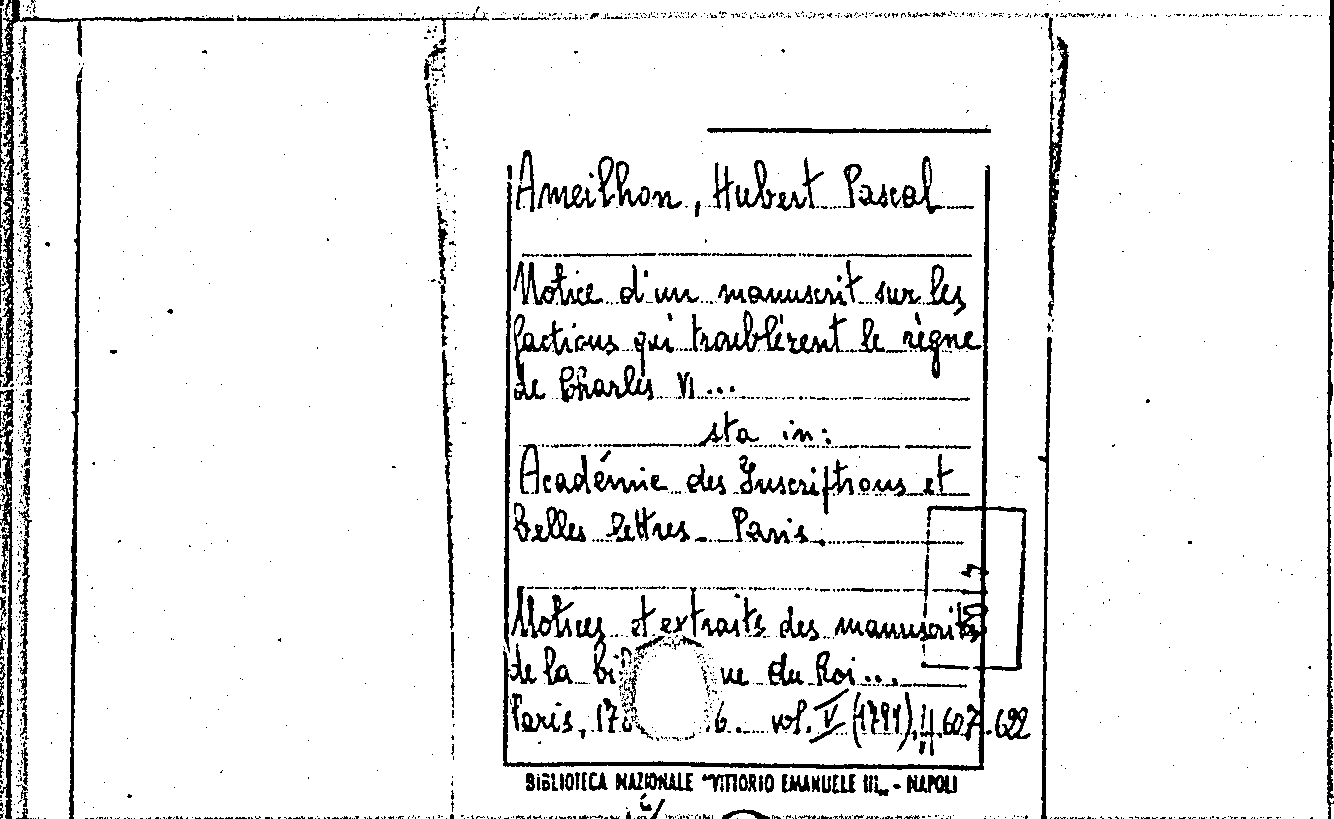 Ameilhon, Hubert Pascal
Notice d'un manuscrit sur les
factions qui troublèrent le règne
de Charles VI...
sta in:
Académie des Inscriptions et
belles lettres. Paris.
Notices et extraits des manuscrits
de la bi ue du Roi...
Paris, 17 6. vol. V (1799), 607-622
BIBLIOTECA NAZIONALE "VITTORIO EMANUELE III" - NAPOLI